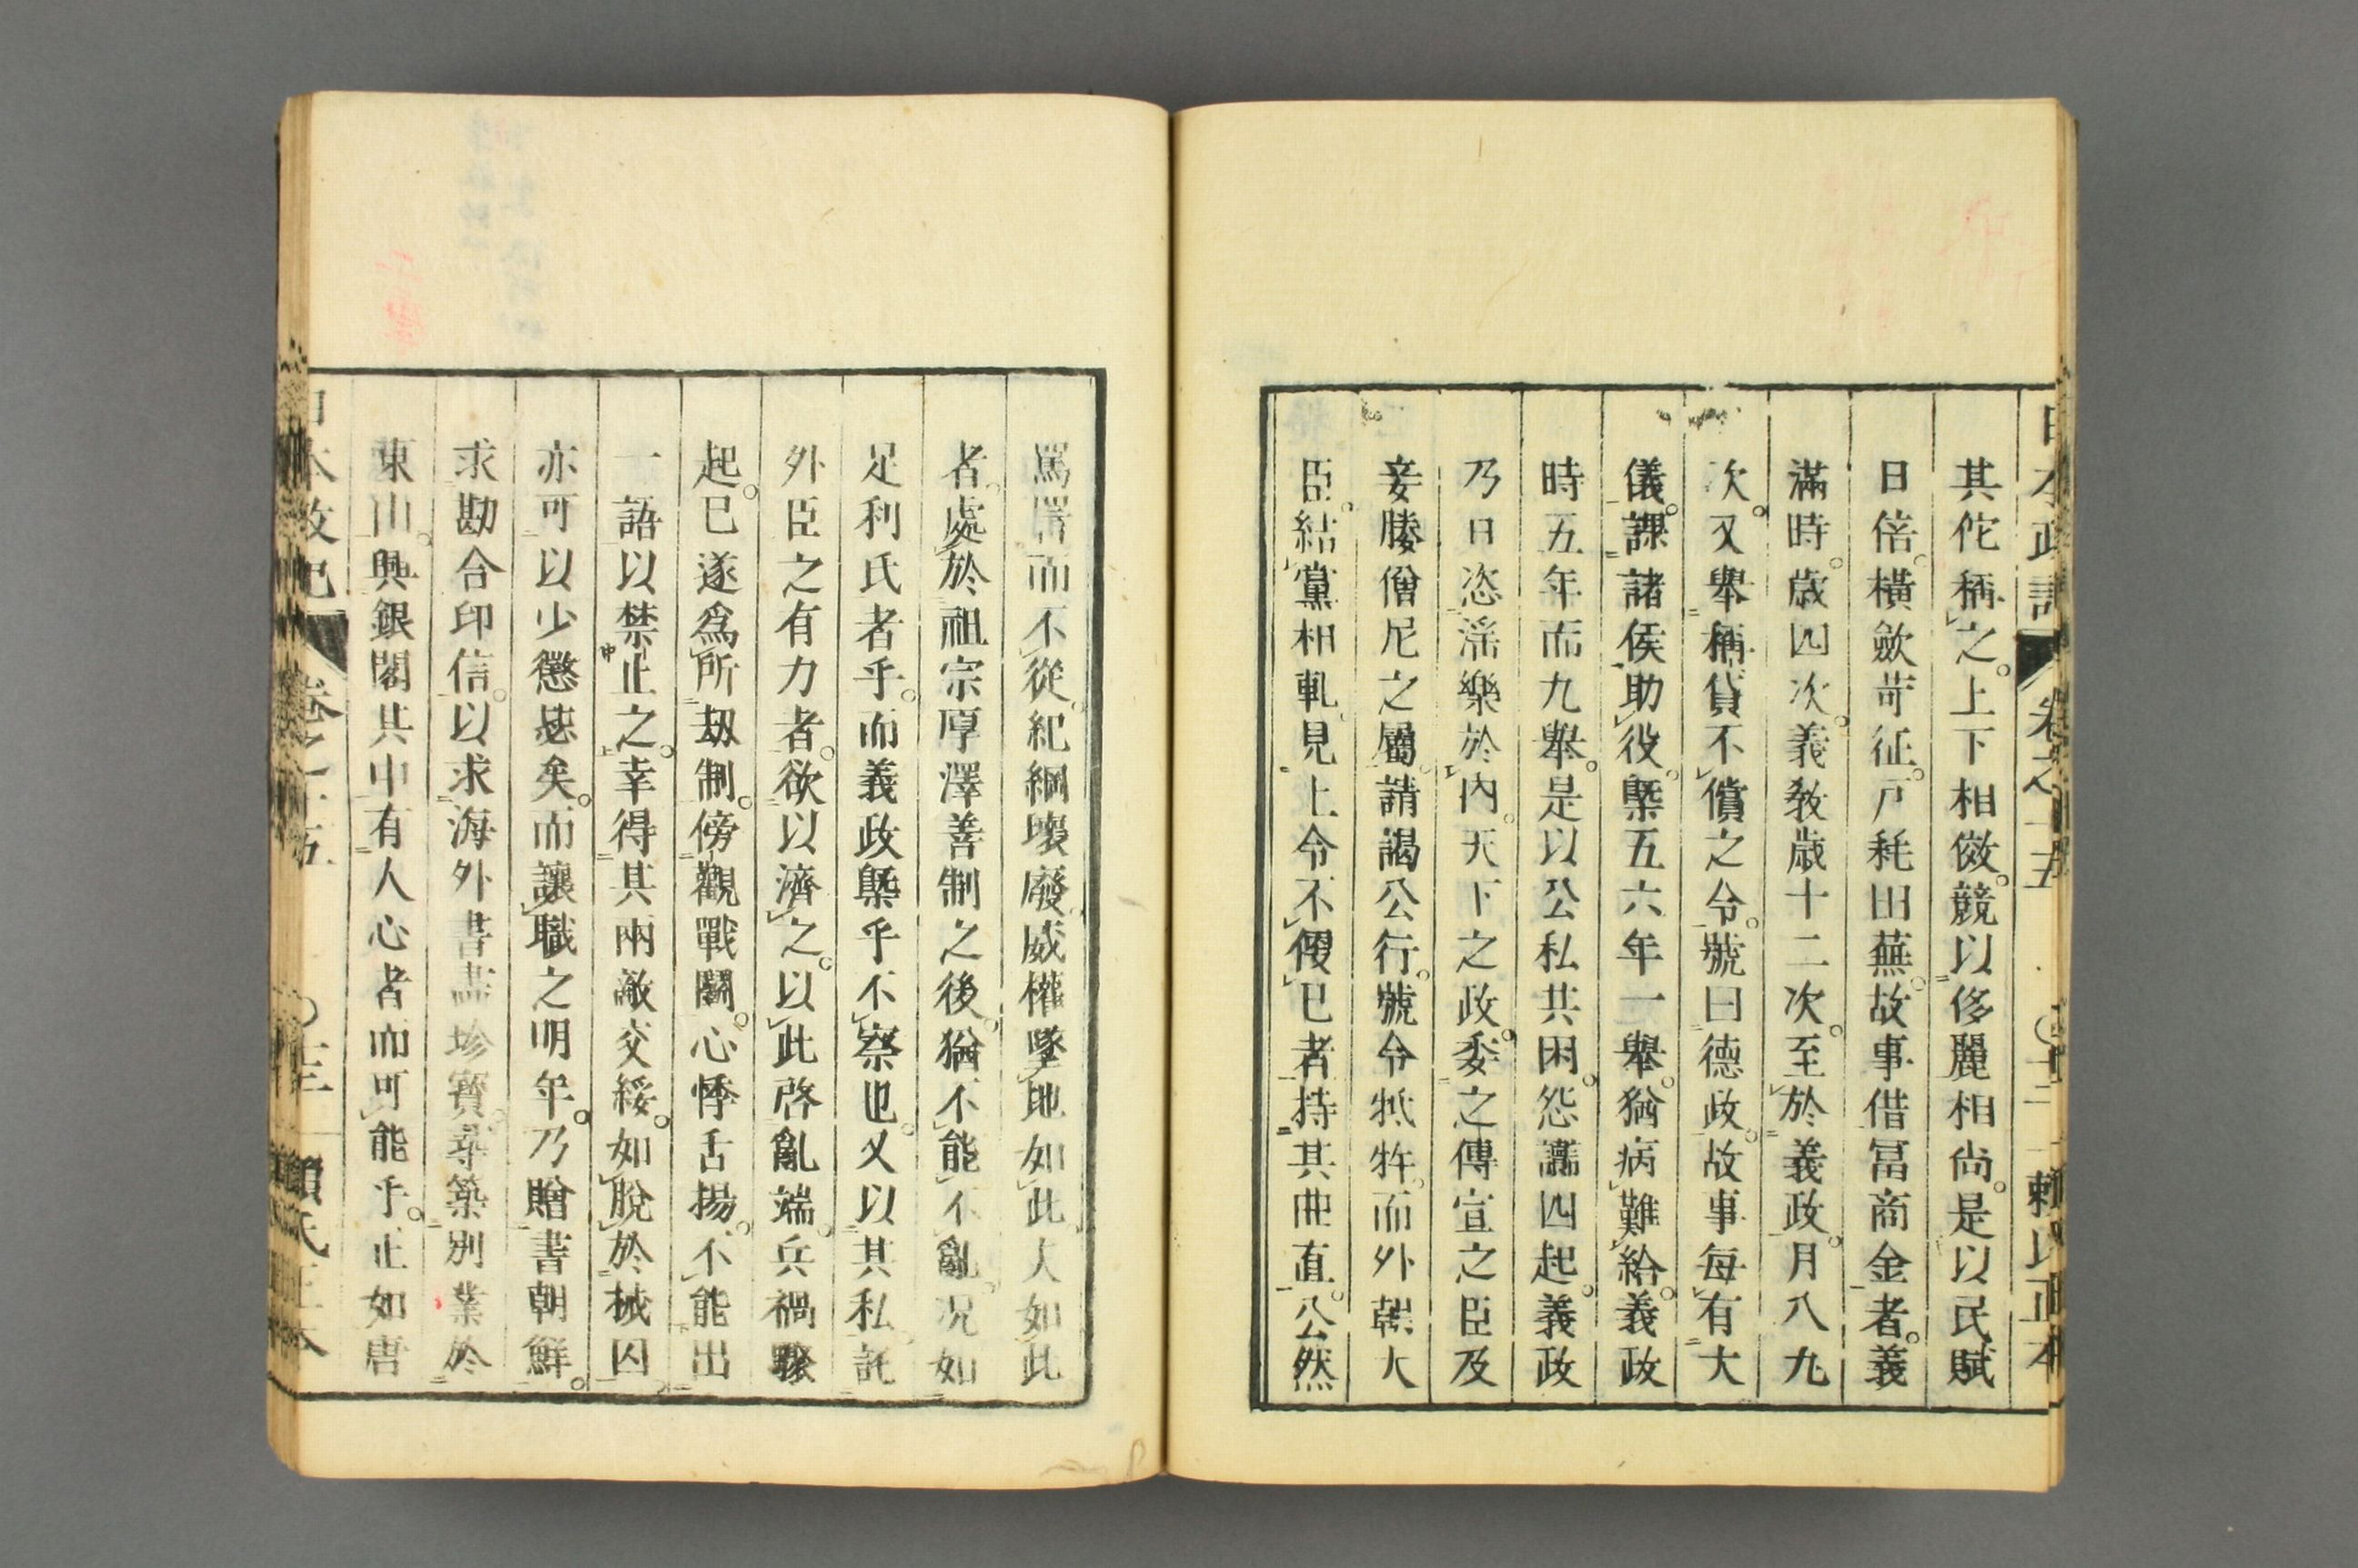 日本政記 卷之十五 〇十二 賴氏正本
其佗稱之。上下相傚。競以侈麗相尚。是以民賦
日倍。橫歛苛征。戸耗田蕪。故事借冨商金者。義
滿時。歳四次。義敎歳十二次。至於義政。月八九
次。又舉稱貸不償之令。號曰德政。故事每有大
儀。課諸侯助役。槩五六年一舉。猶病難給。義政
時五年而九舉。是以公私共困。怨讟四起。義政
乃日恣滛樂於內。天下之政。委之傳宣之臣及
妾媵僧尼之屬。請謁公行。號令牴牾。而外朝大
臣。結黨相軋。見上令不便已者。持其曲直。公然
罵詈而不從。紀綱壞廢。威權墜地如此。人如此
者。處於祖宗厚澤善制之後。猶不能不亂。況如
足利氏者乎。而義政槩乎不察也。又以其私託
外臣之有力者。欲以濟之。以此啓亂端。兵禍驟
起。已遂爲所刼制。傍觀戰鬭。心悸舌揚。不能出
一語以禁止之。幸得其兩敵交綏。如脫於械囚
亦可以少懲毖矣。而讓職之明年。乃贈書朝鮮。
求勘合印信。以求海外書畫珍寶。尋築別業於
東山。興銀閣其中。有人心者而可能乎。止如唐
日本政記 卷之十五 〇十三 賴氏正本